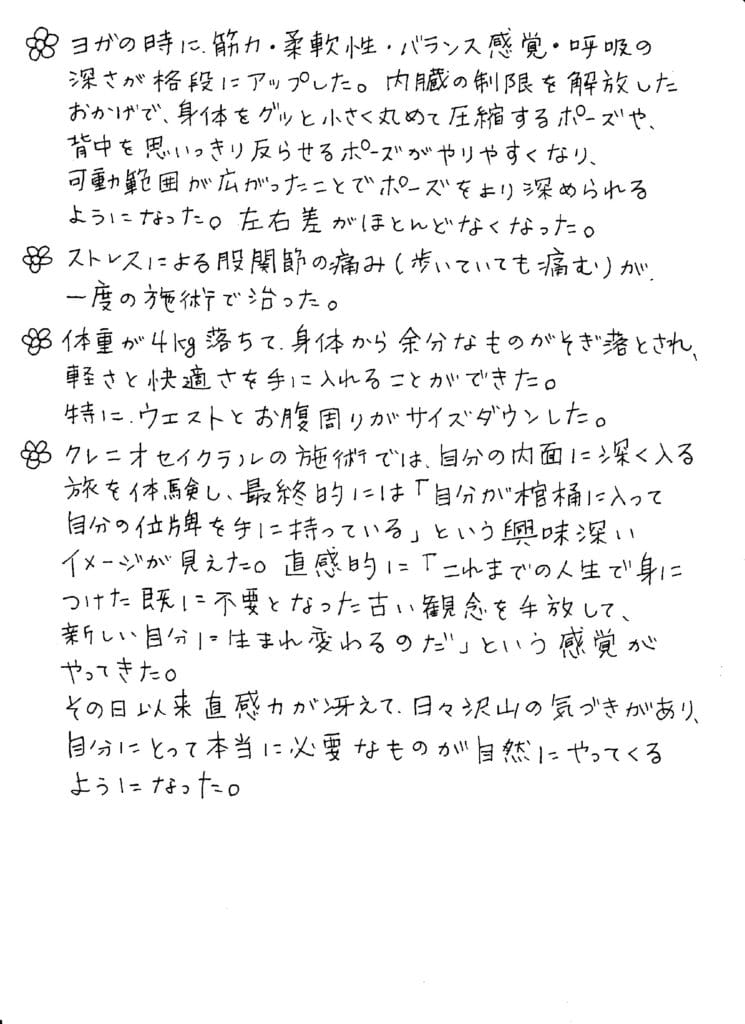 ヨガの時に、筋力・柔軟性・バランス感覚・呼吸の
深さが格段にアップした。内臓の制限を解放した
おかげで、身体をグッと小さく丸めて圧縮するポーズや、
背中を思いっきり反らせるポーズがやりやすくなり、
可動範囲が広がったことでポーズをより深められる
ようになった。左右差がほとんどなくなった。
ストレスによる股関節の痛み(歩いていても痛む)が、
一度の施術で治った。
体重が4kg落ちて、身体から余分なものがそぎ落とされ、
軽さと快適さを手に入れることができた。
特に、ウエストとお腹周りがサイズダウンした。
クレニオセイクラルの施術では、自分の内面に深く入る
旅を体験し、最終的には「自分が棺桶に入って
自分の位牌を手に持っている」という興味深い
イメージが見えた。直感的に「これまでの人生で身に
つけた既に不要となった古い観念を手放して、
新しい自分に生まれ変わるのだ」という感覚が
やってきた。
その日以来直感力が冴えて、日々沢山の気づきがあり、
自分にとって本当に必要なものが自然にやってくる
ようになった。